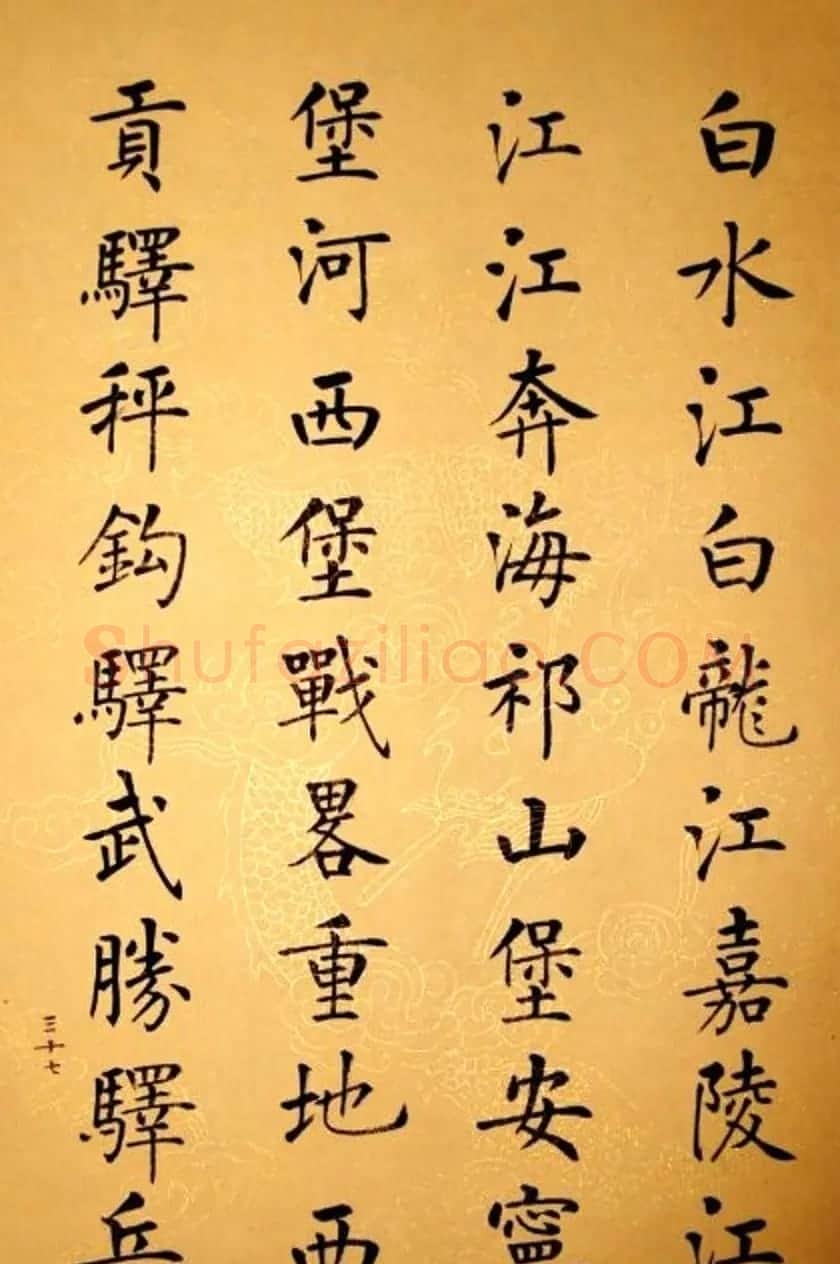 白水江白龍江嘉陵江
江江奔海祁山堡安寧
堡河西堡戰畧重地西
貢驛秤鈎驛武勝驛
三十七
Shufaziliao.COM